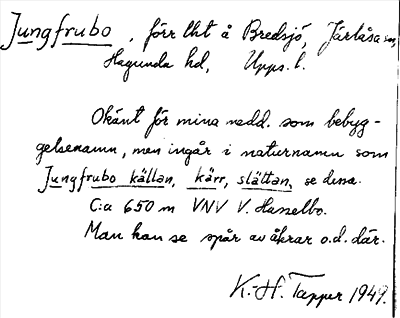 Jungfrubo, förr lht å Bredsjö, Järlåsa sn,
Hagunda hd, Upps. l.
Okänt för mina medd. som bebyg-
gelsenamn, men ingår i naturnamn som
Jungfrubo källan, kärr, slättan, se dessa.
C:a 650 m VNV V. Hasselbo.
Man kan se spår av åkrar o.d. där.
K.-H. Tapper 1949.